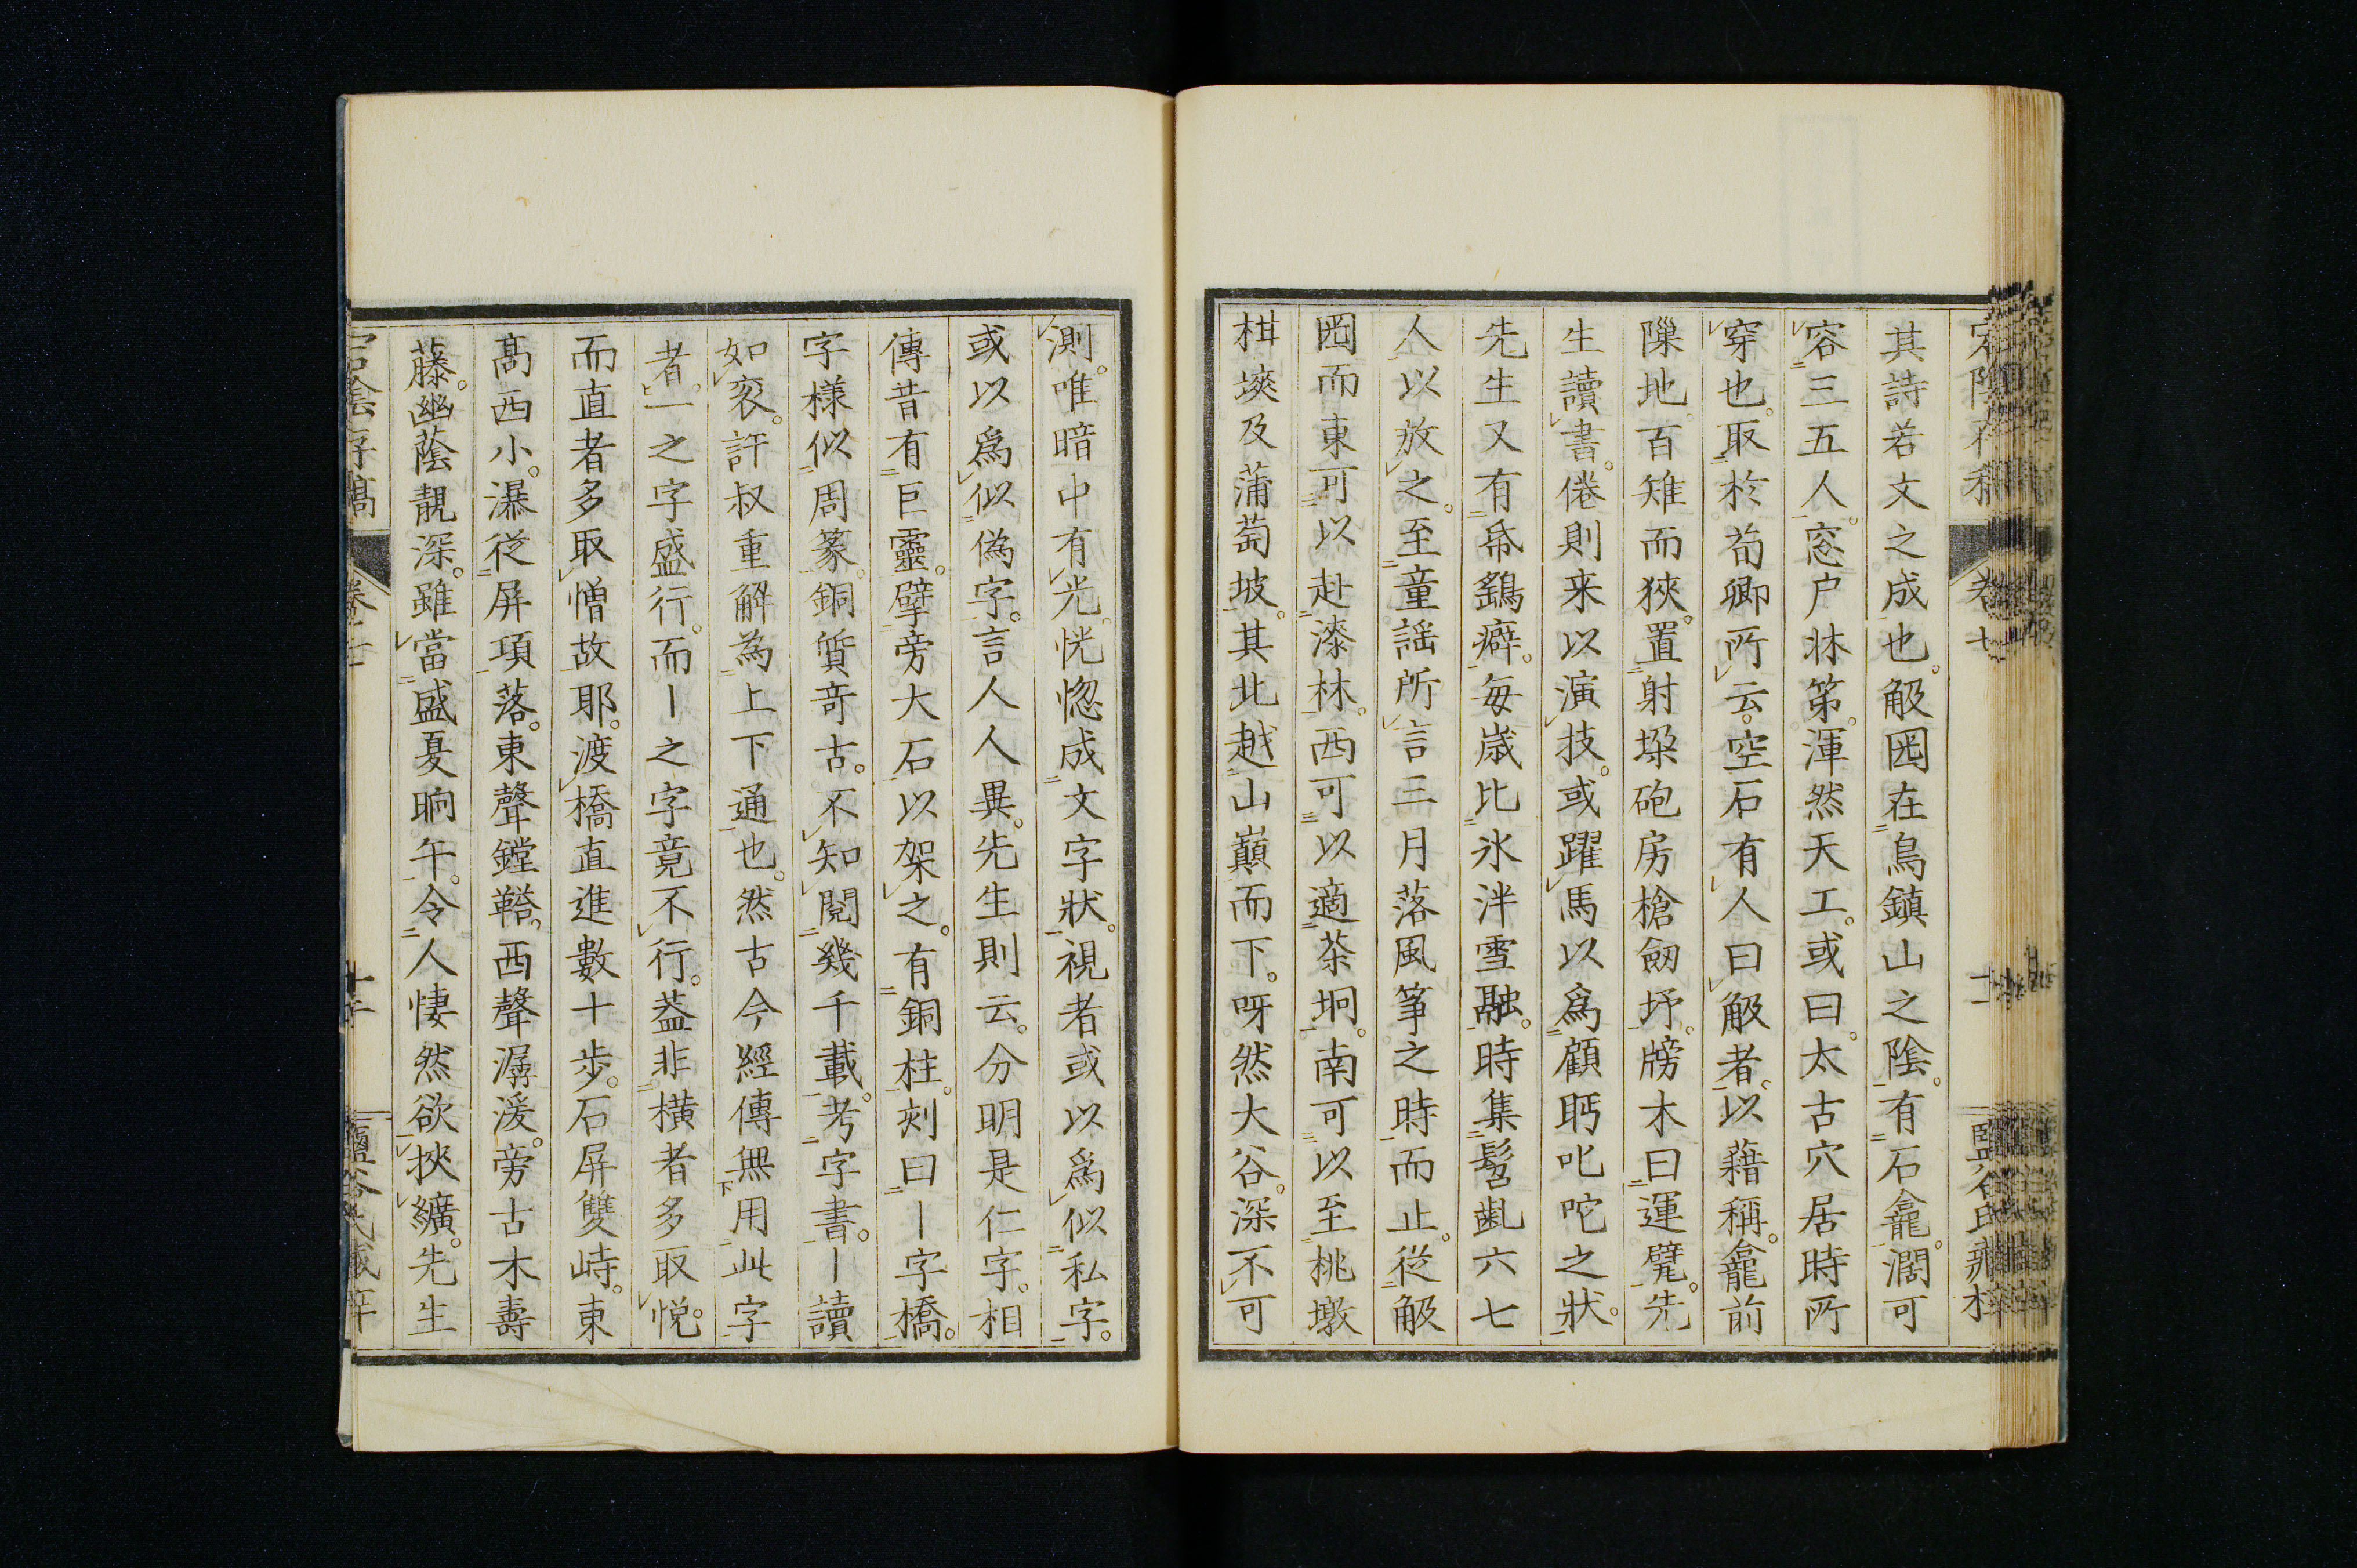 其詩若文之成也。觙园在鳥鎮山之陰。有石龕。濶可
容三五人。窓户牀第。渾然天工。或曰。太古穴居時所
穿也。取於荀卿所云。空石有人曰觙者。以藉稱。龕前
隟地百雉而狹。置射垜砲房槍劔圩。牓木曰運甓。先
生讀書。倦則来以演技。或躍馬以爲顧眄叱咤之狀。
先生又有帋鷂癖。每歳比氷泮雪融。時集髫齓六七
人以放之。至童謡所言三月落風筝之時而止。從觙
园而東可以赴漆林。西可以適茶坰。南可以至桃墩
柑堗及蒲萄坡。其北越山巔而下。呀然大谷。深不可
測。唯暗中有光。恍惚成文字狀。視者或以爲似私字。
或以爲似偽字。言人人異。先生則云。分明是仁字。相
傳昔有巨靈。擘旁大石以架之。有銅柱。刻曰丨字橋。
字様似周篆。銅質奇古。不知閲幾千載。考字書。丨讀
如衮。許叔重解為上下通也。然古今經傳無用此字
者。一之字盛行。而丨之字竟不行。盖非橫者多取悅。
而直者多取憎故耶。渡橋直進數十歩。石屏雙峙。東
髙西小。瀑從屏項落。東聲鏜鞳。西聲潺湲。旁古木壽
藤。幽蔭靚深。雖當盛夏晌午。令人悽然欲挾纊。先生